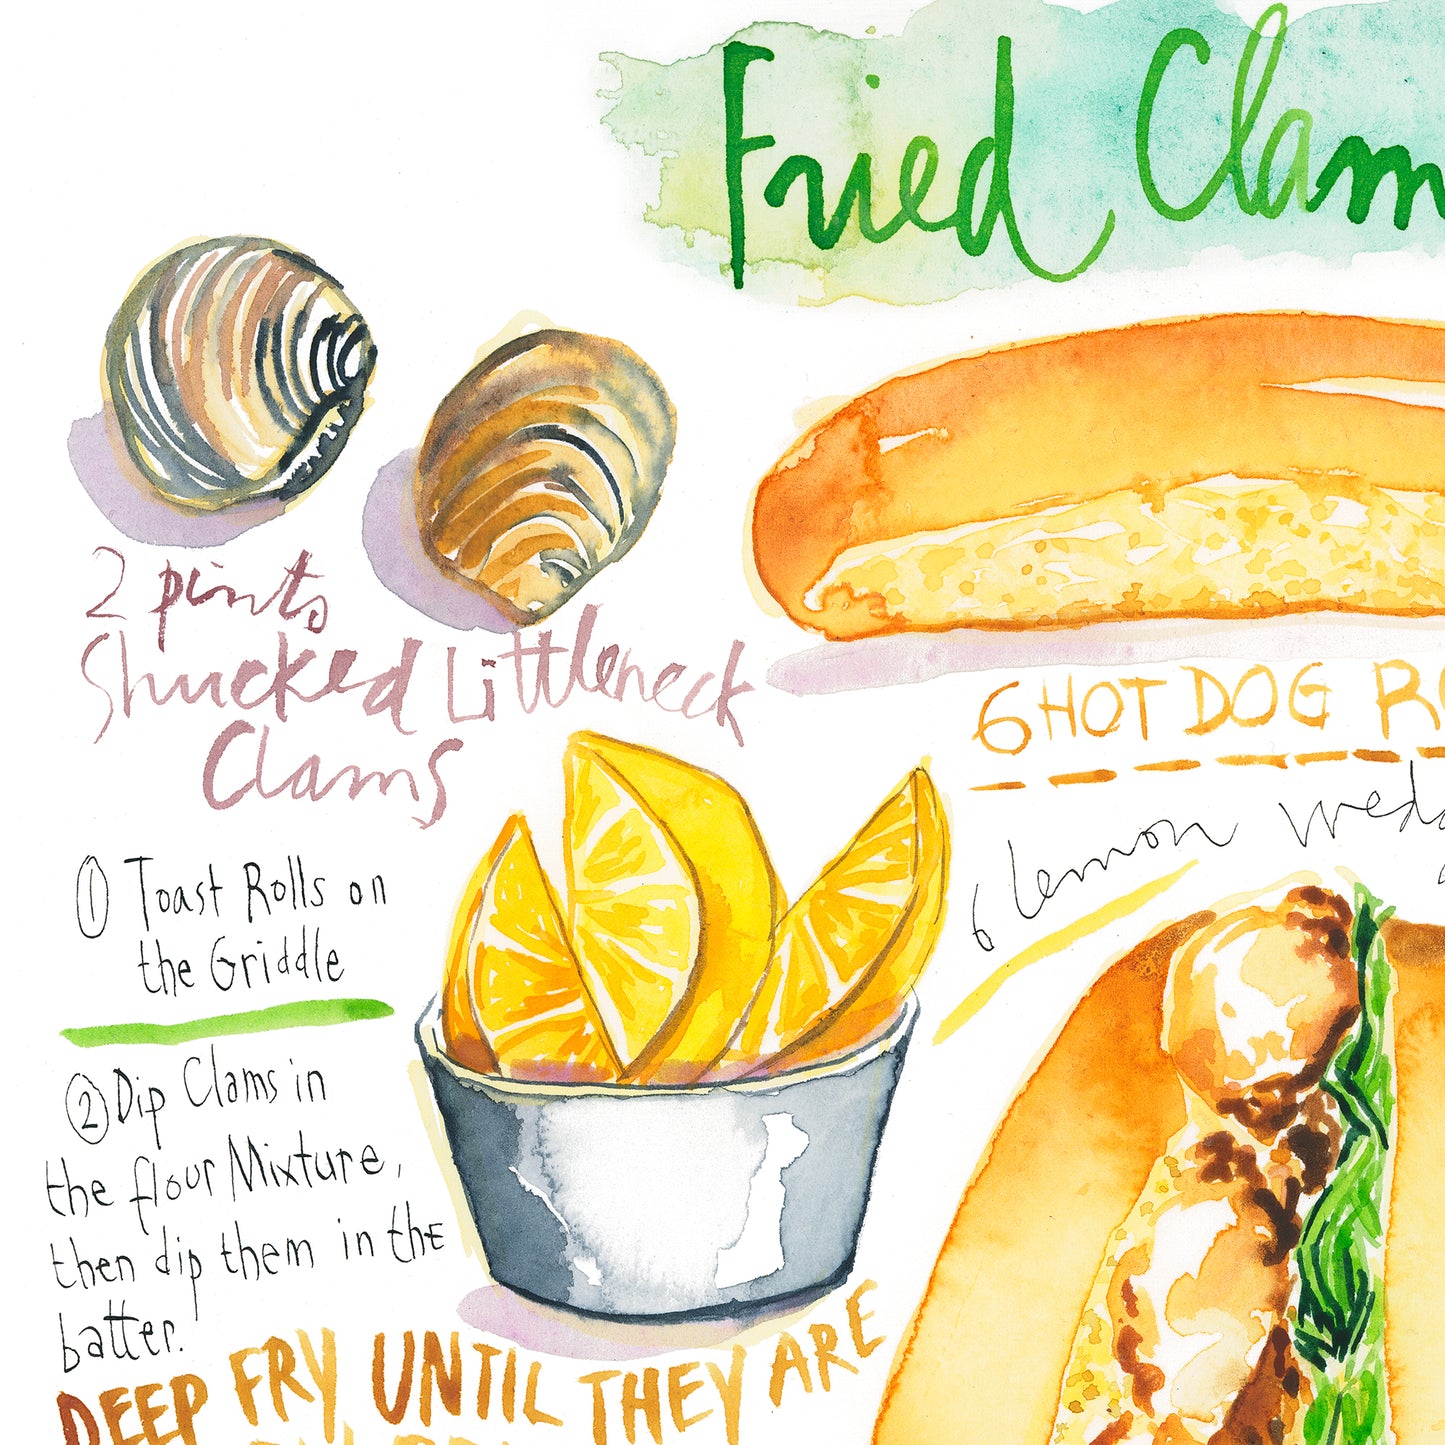 Fried Clam
2 pints
Shucked Littleneck
Clams
6 HOT DOG
6 lemon
① Toast Rolls on
the Griddle
② Dip Clams in
the flour Mixture,
then dip them in the
batter.
DEEP FRY UNTIL THEY ARE